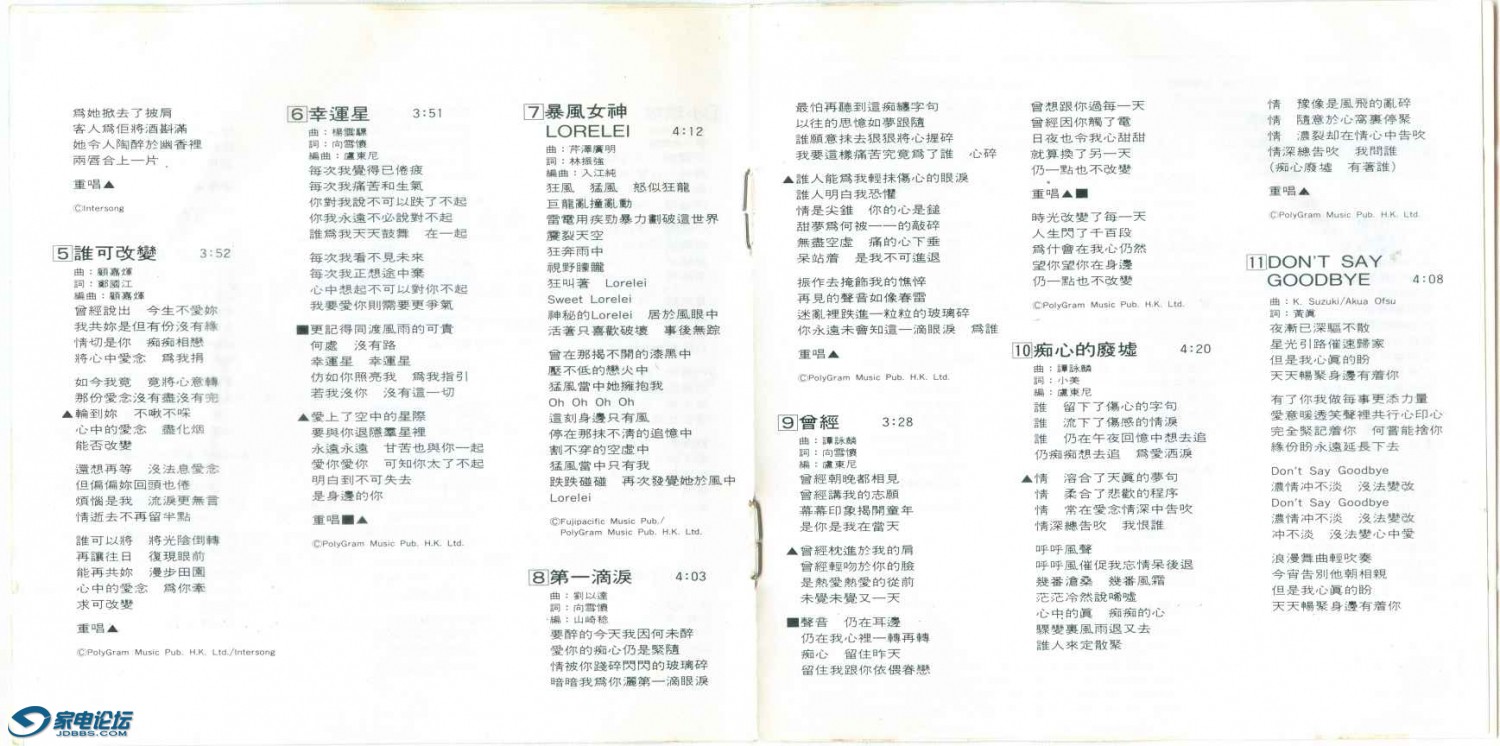 爲她掀去了披肩
客人爲佢將酒斟滿
她令人陶醉於幽香裡
兩唇合上一片
重唱▲
©Intersong
5 誰可改變 3:52
曲：顧嘉煇
詞：鄭國江
編曲：顧嘉煇
曾經說出 今生不愛妳
我共妳是但有份沒有緣
情切是你 痴痴相戀
將心中愛念 爲我捐
如今我竟 竟將心意轉
那份愛念沒有盡沒有完
▲輪到妳 不啾不啋
心中的愛念 盡化烟
能否改變
還想再等 沒法息愛念
但偏偏妳回頭也倦
煩惱是我 流淚更無言
情逝去不再留半點
誰可以將 將光陰倒轉
再讓往日 復現眼前
能再共妳 漫步田園
心中的愛念 爲你牽
求可改變
重唱▲
©PolyGram Music Pub. H.K. Ltd./Intersong
6 幸運星 3:51
曲：楊雲驃
詞：向雪懷
編曲：盧東尼
每次我覺得已倦疲
每次我痛苦和生氣
你對我說不可以跌了不起
你我永遠不必說對不起
誰爲我天天鼓舞 在一起
每次我看不見未來
每次我正想途中棄
心中想起不可以對你不起
我要愛你則需要更爭氣
■更記得同渡風雨的可貴
何處 沒有路
幸運星 幸運星
仿如你照亮我 爲我指引
若我沒你 沒有這一切
▲愛上了空中的星際
要與你退隱羣星裡
永遠永遠 甘苦也與你一起
愛你愛你 可知你太了不起
明白到不可失去
是身邊的你
重唱■▲
©PolyGram Music Pub. H.K. Ltd.
7 暴風女神
LORELEI 4:12
曲：芹澤廣明
詞：林振強
編曲：入江純
狂風 猛風 怒似狂龍
巨龍亂撞亂動
雷電用疾勁暴力劃破這世界
震裂天空
狂奔雨中
視野矇矓
狂叫著 Lorelei
Sweet Lorelei
神秘的Lorelei 居於風眼中
活著只喜歡破壞 事後無踪
曾在那揭不開的漆黑中
壓不低的戀火中
猛風當中她擁抱我
Oh Oh Oh Oh
這刻身邊只有風
停在那抹不清的追憶中
割不穿的空虛中
猛風當中只有我
跌跌碰碰 再次發覺她於風中
Lorelei
©Fujipacific Music Pub./
PolyGram Music Pub. H.K. Ltd.
8 第一滴淚 4:03
曲：劉以達
詞：向雪懷
編：山崎稔
要醉的今天我因何未醉
愛你的痴心仍是緊隨
情被你踐碎閃閃的玻璃碎
暗暗我爲你灑第一滴眼淚
最怕再聽到這痴纏字句
以往的思憶如夢跟隨
誰願意抹去狠狠將心握碎
我要這樣痛苦究竟爲了誰 心碎
▲誰人能爲我輕抹傷心的眼淚
誰人明白我恐懼
情是尖錐 你的心是鎚
甜夢爲何被一一的敲碎
無盡空虛 痛的心下垂
呆站着 是我不可進退
振作去掩飾我的憔悴
再見的聲音如像春雷
迷亂裡跌進一粒粒的玻璃碎
你永遠未會知這一滴眼淚 爲誰
重唱▲
©PolyGram Music Pub. H.K. Ltd.
9 曾經 3:28
曲：譚詠麟
詞：向雪懷
編：盧東尼
曾經朝晚都相見
曾經講我的志願
幕幕印象揭開童年
是你是我在當天
▲曾經枕進於我的肩
曾經輕吻於你的臉
是熱愛熱愛的從前
未覺未覺又一天
■聲音 仍在耳邊
仍在我心裡一轉再轉
痴心 留住昨天
留住我跟你依偎眷戀
曾想跟你過每一天
曾經因你觸了電
日夜也令我心甜甜
就算換了另一天
仍一點也不改變
重唱▲■
時光改變了每一天
人生閃了千百段
爲什會在我心仍然
望你望你在身邊
仍一點也不改變
©PolyGram Music Pub. H.K. Ltd.
10 痴心的廢墟 4:20
曲：譚詠麟
詞：小美
編：盧東尼
誰 留下了傷心的字句
誰 流下了傷感的情淚
誰 仍在午夜回憶中想去追
仍痴痴想去追 爲愛洒淚
▲情 溶合了天眞的夢句
情 柔合了悲歡的程序
情 常在愛念情深中告吹
情深總告吹 我恨誰
呼呼風聲
呼呼風催促我忘情呆後退
幾番滄桑 幾番風霜
茫茫冷然說唏噓
心中的眞 痴痴的心
驟變裏風雨退又去
誰人來定散聚
情 豫像是風飛的亂碎
情 隨意於心窩裏停緊
情 濃裂却在情心中告吹
情深總告吹 我問誰
（痴心廢墟 有著誰）
重唱▲
©PolyGram Music Pub. H.K. Ltd.
11 DON'T SAY
GOODBYE 4:08
曲：K. Suzuki/Akua Ofsu
詞：黃眞
夜漸已深驅不散
星光引路催速歸家
但是我心眞的盼
天天暢緊身邊有着你
有了你我做每事更添力量
愛意暖透笑聲裡共行心印心
完全緊記着你 何嘗能捨你
緣份盼永遠延長下去
Don't Say Goodbye
濃情冲不淡 沒法變改
Don't Say Goodbye
濃情冲不淡 沒法變改
冲不淡 沒法變心中愛
浪漫舞曲輕吹奏
今宵告別他朝相親
但是我心眞的盼
天天暢緊身邊有着你
家电论坛
JDBBS.COM